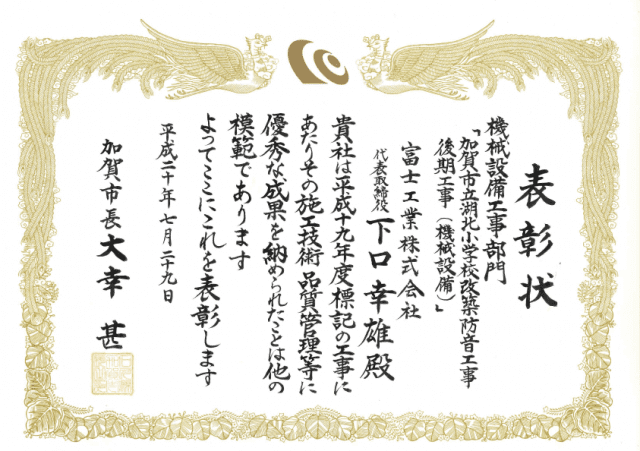 表彰状
機械設備工事部門
「加賀市立湖北小学校改築防音工事
後期工事（機械設備）」
富士工業株式会社
代表取締役 下口幸雄殿
貴社は平成十九年度標記の工事に
あたりその施工技術品質管理等に
優秀な成果を納められたことは他の
模範であります
よってここにこれを表彰します
平成二十年七月二十九日
加賀市長 大幸甚